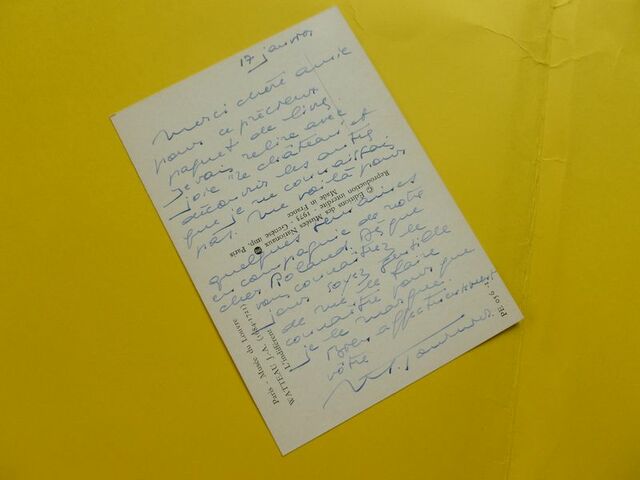 17 janvier
Merci chère amie
pour ce précieux
paquet de livres
je vais relire avec
joie "le château" et
découvrir les autres
que je ne connaissais
pas. Me voilà pour
quelques semaines
en compagnie de votre
cher Roland. Dès que
vous connaîtrez le
jour soyez gentille
de me le faire
connaître pour que
je le marque.
Bien affectueusement
vôtre
Paris - Musée du Louvre
WATTEAU J.-A. (1684-1721)
L'Indifférent
© Éditions des Musées Nationaux - Paris
Reproduction interdite 1973 - Genèse imp.
Made in France
PE 036